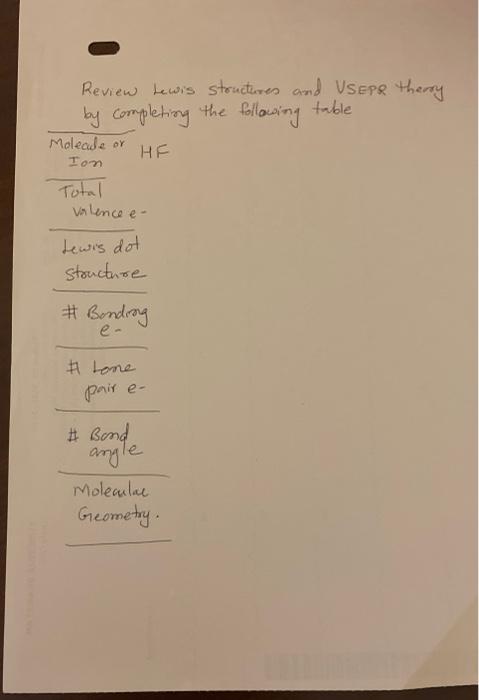 Review Lewis structures and VSEPR theory
by completing the following table
Molecule or HF
Ion
Total
valence e-
Lewis dot
structure
# Bonding
e-
# Lone
pair e-
# Bond
angle
Molecular
Geometry.